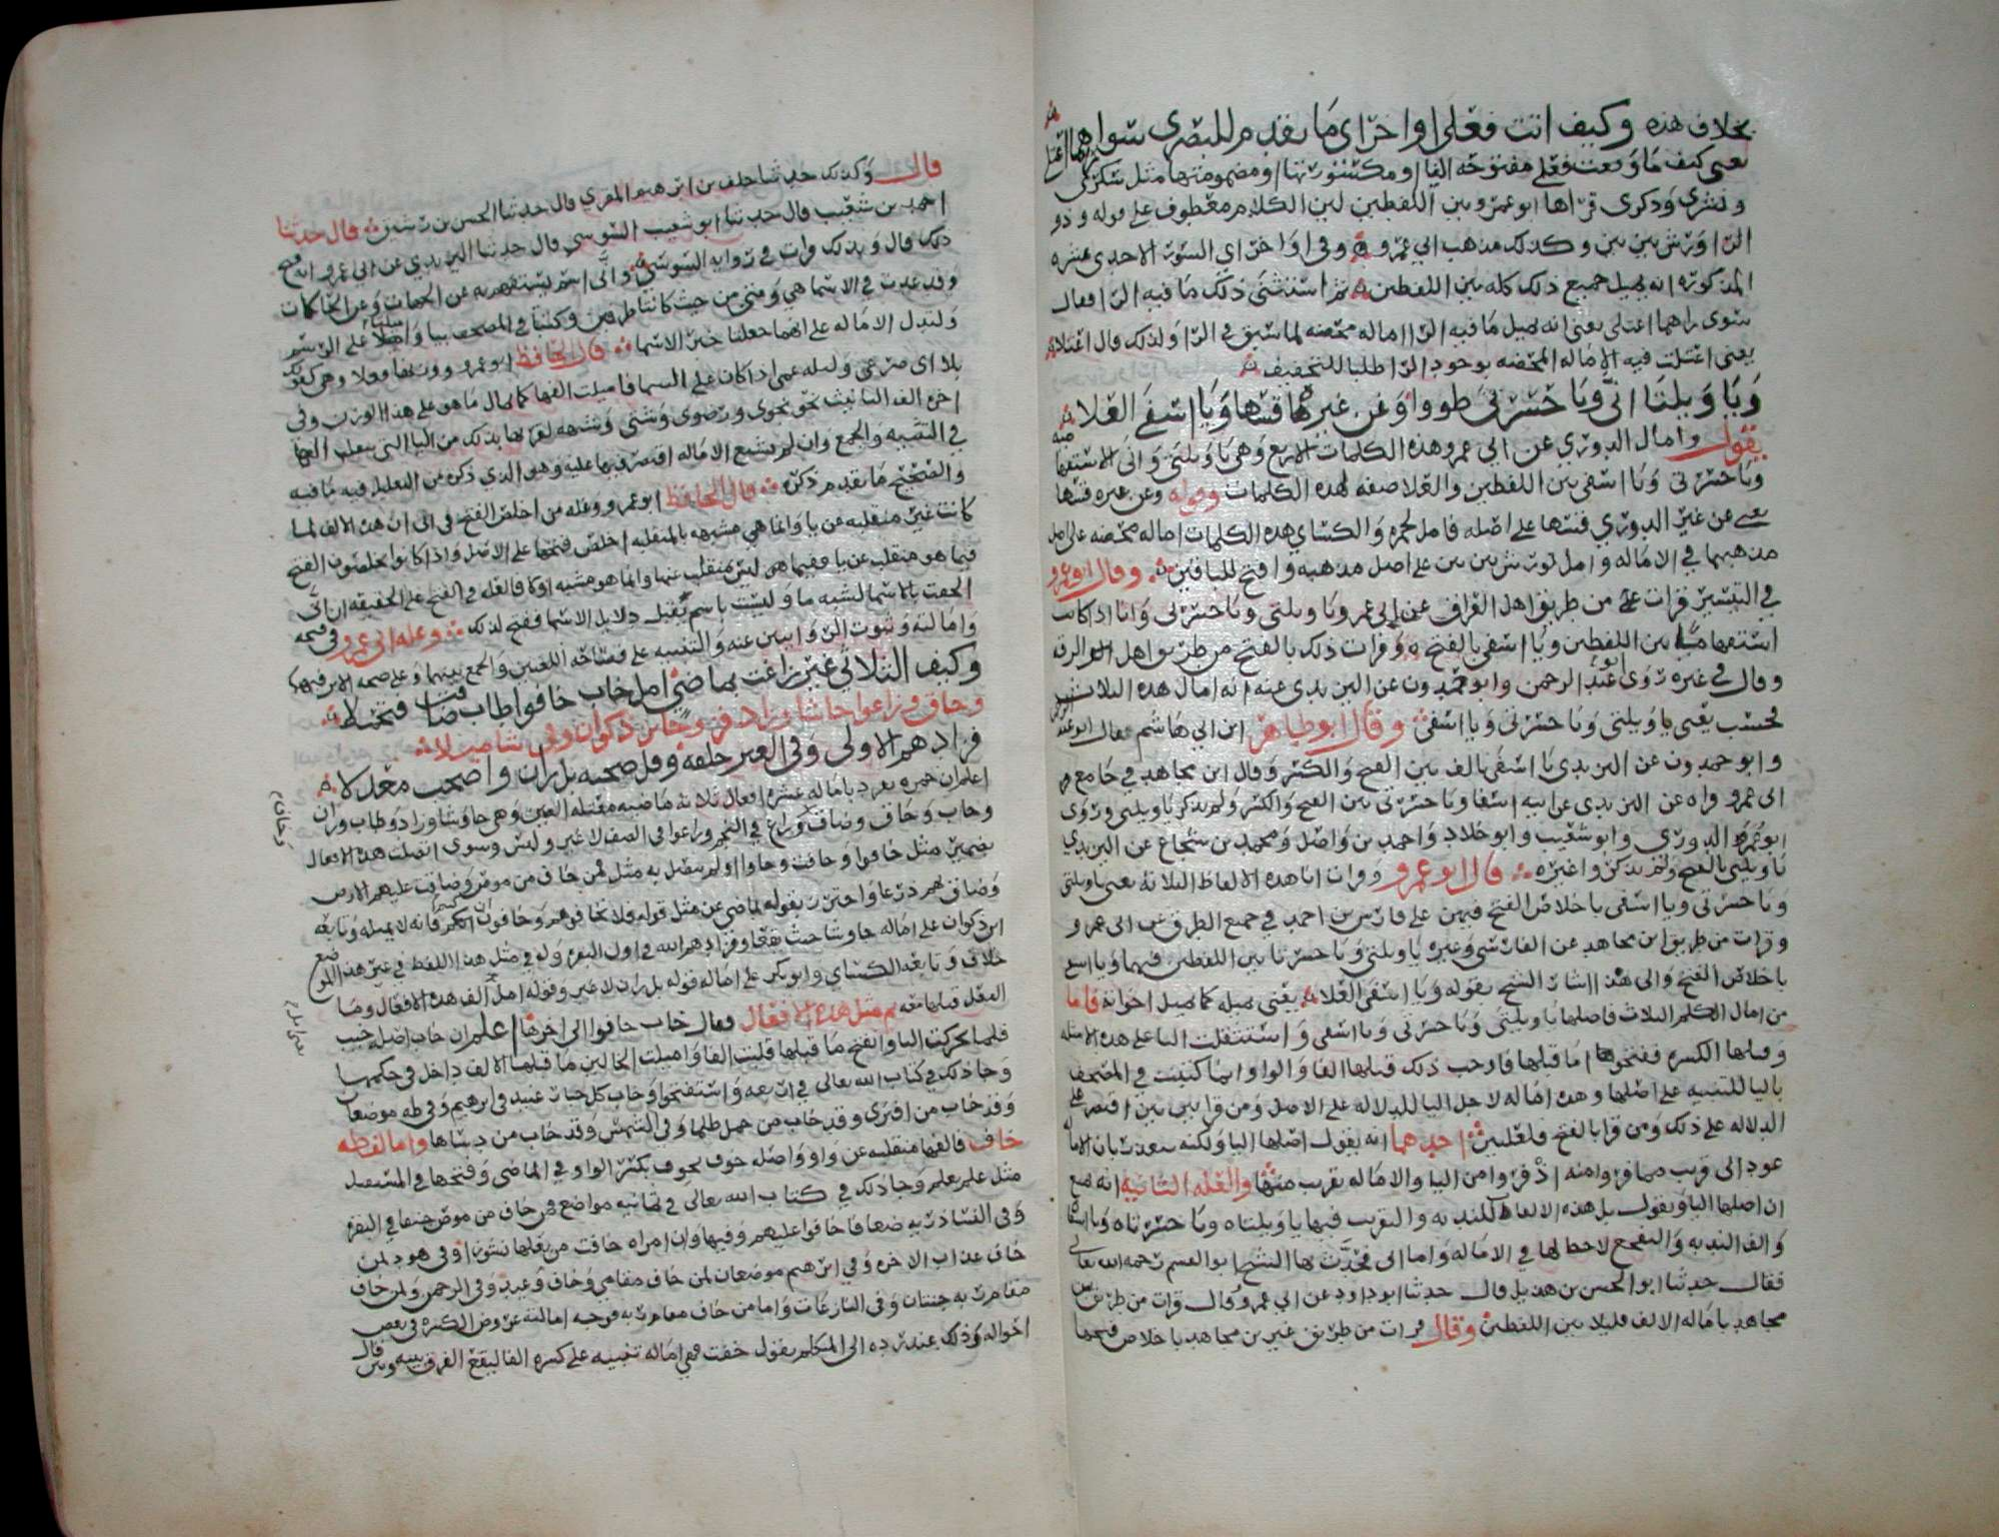 بخلاف هذه وكيف اتت فعلى واخر اى ما تقدم للبصرى سوا راهما اعتلى
يعنى كيف ما وقعت فعلى مفتوحه الفا او مكسورتها او مضمومتها مثل سكرى
وبشرى وذكرى قراها ابو عمرو بين اللفظين لان الكلام معطوف على قوله وذو
الرا ورش بين بين وكذلك مذهب ابي عمرو وفي اواخر اى السور الاحدى عشره
المذكوره انه يميل جميع ذلك كله بين اللفظين ثم استثنى ذلك ما فيه الرا فقال
سوى راهما اعتلى يعنى انه يميل ما فيه الرا اماله محضه لما سبق في الرا ولذلك قال اعتلا
يعنى اعتلت فيه الاماله المحضه بوجود الرا طلبا للتخفيف
ويا ويلتا انى ويا حسرتى طووا وعن غيره قسها ويا اسفى العلا
يقول وامال الدوري عن ابي عمرو هذه الكلمات الاربع وهي يا ويلتى وانى الاستفهاميه
ويا حسرتى ويا اسفى بين اللفظين والعلا صفه لهذه الكلمات وقوله وعن غيره قسها
يعنى عن غير الدوري قسها على اصله فامل لحمزه والكساي هذه الكلمات اماله محضه على اصل
مذهبهما في الاماله وامل لورش بين بين على اصل مذهبه وافتح للباقين وقال ابو عمرو
في التيسير قرات على من طريق اهل العراق عن ابي عمرو يا ويلتى ويا حسرتى وانى اذا كانت
استفهاما بين اللفظين ويا اسفى بالفتح وقرات ذلك بالفتح من طريق اهل الرقه
وقال في غيره روى ابو عبد الرحمن وابو حمدون عن اليزيدى عنه انه امال هذه الثلاث
فحسب يعنى يا ويلتى ويا حسرتى ويا اسفى وقال ابو طاهر ابن ابي هاشم
وابو حمدون عن اليزيدى يا اسفى بالف بين الفتح والكسر وقال ابن مجاهد في جامع
ابى عمرو رواه عن اليزيدى عن ابيه اسفا ويا حسرتى بين الفتح والكسر ولم يذكر يا ويلتى وروى
ابو عمر الدوري وابو شعيب وابو خلاد واحمد بن واصل ومحمد بن شجاع عن اليزيدي
يا ويلتى بالفتح ولم يذكروا غيره قال ابو عمرو وقرات انا هذه الالفاظ الثلاثه يعنى يا ويلتى
ويا حسرتى ويا اسفى باخلاص الفتح فيهن على فارس بن احمد في جميع الطرق عن ابى عمرو
وقرات من طريق ابن مجاهد عن الفارسى وغيره يا ويلتى ويا حسرتا بين اللفظين فيهما ويا اسفى
باخلاص الفتح والى هذا اشار الشيخ بقوله ويا اسفى العلا يعنى يميله كما يميل اخواته فاما
من امال الكلم الثلاث فاصلها يا ويلتى ويا حسرتى ويا اسفى واستثقلت اليا على هذه الامثله
وقبلها الكسره ففتحوا ما قبلها فاوجب ذلك قبلها الفا والوا وانما كتبت في المصحف
باليا للتنبيه على اصلها وهذه اماله لاجل اليا للدلاله على الاصل ومن قرا بين بين اقتصر على
الدلاله على ذلك ومن قرا بالفتح فلعلتين احدهما انه يقول اصلها اليا ولكنه
عود الى قريب مما فروا منه اذ فروا من اليا والاماله تقرب منها والعله الثانيه انه منع
ان اصلها اليا ويقول بل هذه الالفاظ للندبه والتقريب فيها يا ويلتاه ويا حسرتاه ويا اسفاه
والف الندبه والتفجع لا حظ لها في الاماله واما انى فحدثنا بها الشيخ ابو القسم رحمه الله تعالى
فقال حدثنا ابو الحسن بن هذيل قال حدثنا ابو داود عن ابي عمرو قال قرات من طريق ابن
مجاهد باماله الالف قليلا بين اللفظين وقال قرات من طريق غير بن مجاهد باخلاص فتحها
قال وكذلك حدثنا خلف بن ابرهيم المقري قال حدثنا الحسن بن رشيق قال حدثنا
احمد بن شعيب قال حدثنا ابو شعيب السوسي قال حدثنا اليزيدي عن ابي عمرو انه فتح
ذلك قال وبذلك قرات في روايه السوسي وانى اسم يستفهم به عن الجهات وعن الحالات
وقد عدت في الاسما هي ومتى من حيث كانتا ظرفين وكتبتا في المصحف بيا واميلتا على الرسم
ولتدل الاماله على انهما جعلتا خبر الاسما قال الحافظ ابو عمرو ووزنها فعلا وهى كقولك
بلا اى صرعى وليله عمى اذا كان على السما فاميلت الفها كما يمال ما هو على هذا الوزن وفى
اخره الف التانيث نحو نجوى ورضوى وشتى وشبهه لقربها بذلك من اليا التى ينقلب الفها
في التثنيه والجمع وان لم تشبع الاماله اقتصر فيها عليه وهى الذي ذكره من التعليل فيه ما فيه
والصحيح ما تقدم ذكره قال الحافظ ابو عمرو وعله من اخلص الفتح في انى ان هذه الالف لما
كانت غير منقلبه عن يا وانما هي مشبهه بالمنقلبه اخلص فتحها على الاصل واذا كانوا يخلصون الفتح
فيما هو منقلب عن يا ففيما هو ليس منقلب عنها وانما هو مشبه اوكد قال على الحقيقه ان انى
الحقت بالاسما لشبه ما وليست باسم فقيل دلايل الاسما ففتح لذلك وعله ابى عمرو في فتحه
وامالته وثبوت الروايتين عنه والتنبيه على فصاحه اللغتين والجمع بينهما وعلى صحه الاثر فيهما
وكيف الثلاثى غير زاغت بماضى امل خاب خافوا طاب ضاقت فتجملا
وحاق وزاغوا جا شا وزاد فز وجا بن ذكوان وفى شا ميلا
فزادهم الاولى وفى الغير خلفه وقل صحبه بل ران واصحب معدلا
اعلم ان حمزه تفرد باماله عشره افعال ثلاثه ماضيه معتله العين وهى جا وشا وزاد وطاب وران
وخاب وحاق وضاق وزاغ في النجم وزاغوا في الصف لا غير وليس وسوى اتصلت هذه الافعال
بضمير مثل خافوا وخافت وجاوا او لم يتصل به مثل لمن خاف من موص وضاقت عليهم الارض
وضاق بهم ذرعا واحترز بقوله بماضى عن مثل قوله فلا تخافوهم وخافون ان كنتم فانه لا يميله وتابعه
ابن ذكوان على اماله جا وشا حيث وقعا وفزادهم الله في اول البقره وله في مثل هذا اللفظ في غير هذا الموضع
خلاف وتابعه الكساي وابو بكر على اماله قوله بل ران لا غير وقوله امل الف هذه الافعال وما
الفعل قبلها معه ثم مثل هذه الافعال فقال خاب خافوا الى اخرها اعلم ان خاب اصله خيب
فلما تحركت اليا وانفتح ما قبلها قلبت الفا واميلت الخا لان ما قبل الالف داخل في حكمها
وجا ذلك في كتاب الله تعالى في اربعه واستفتحوا وخاب كل جبار عنيد في ابرهيم وفى طه موضعان
وقد خاب من افترى وقد خاب من حمل ظلما وفى الشمس وقد خاب من دساها واما لفظه
خاف فالفها منقلبه عن واو واصله خوف يخوف بكسر الواو في الماضى وفتحها في المستقبل
مثل علم يعلم وجا ذلك في كتاب الله تعالى في ثمانيه مواضع فمن خاف من موص جنفا في البقره
وفى النسا ذريه ضعافا خافوا عليهم وفيها وان امراه خافت من بعلها نشوزا وفى هود لمن
خاف عذاب الاخره وفي ابرهيم موضعان لمن خاف مقامى وخاف وعيد وفى الرحمن ولمن خاف
مقام ربه جنتان وفى النازعات واما من خاف مقام ربه فوجه امالته عروض الكسره في بعض
احواله وذلك عند رده الى المتكلم يقول خفت ففى اماله تنبيه على كسره الفا ليقع الفرق بينه وبين قال